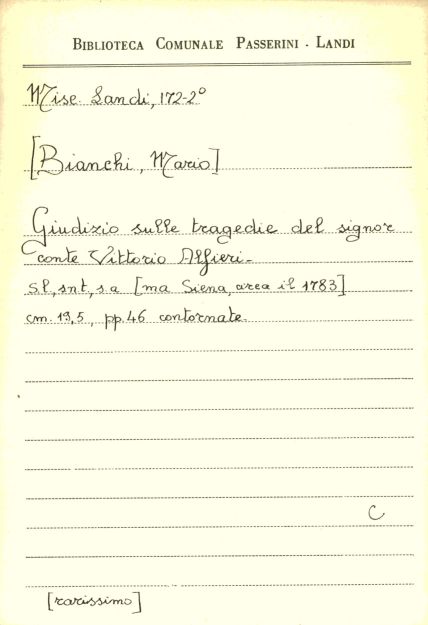 BIBLIOTECA COMUNALE PASSERINI - LANDI
Misc. Landi, 172-2°
[Bianchi, Mario]
Giudizio sulle tragedie del signor
conte Vittorio Alfieri.
S.l., s.n.t., s.a. [ma Siena, circa il 1783]
cm. 19,5, pp. 46 contornate.
C
[rarissimo]